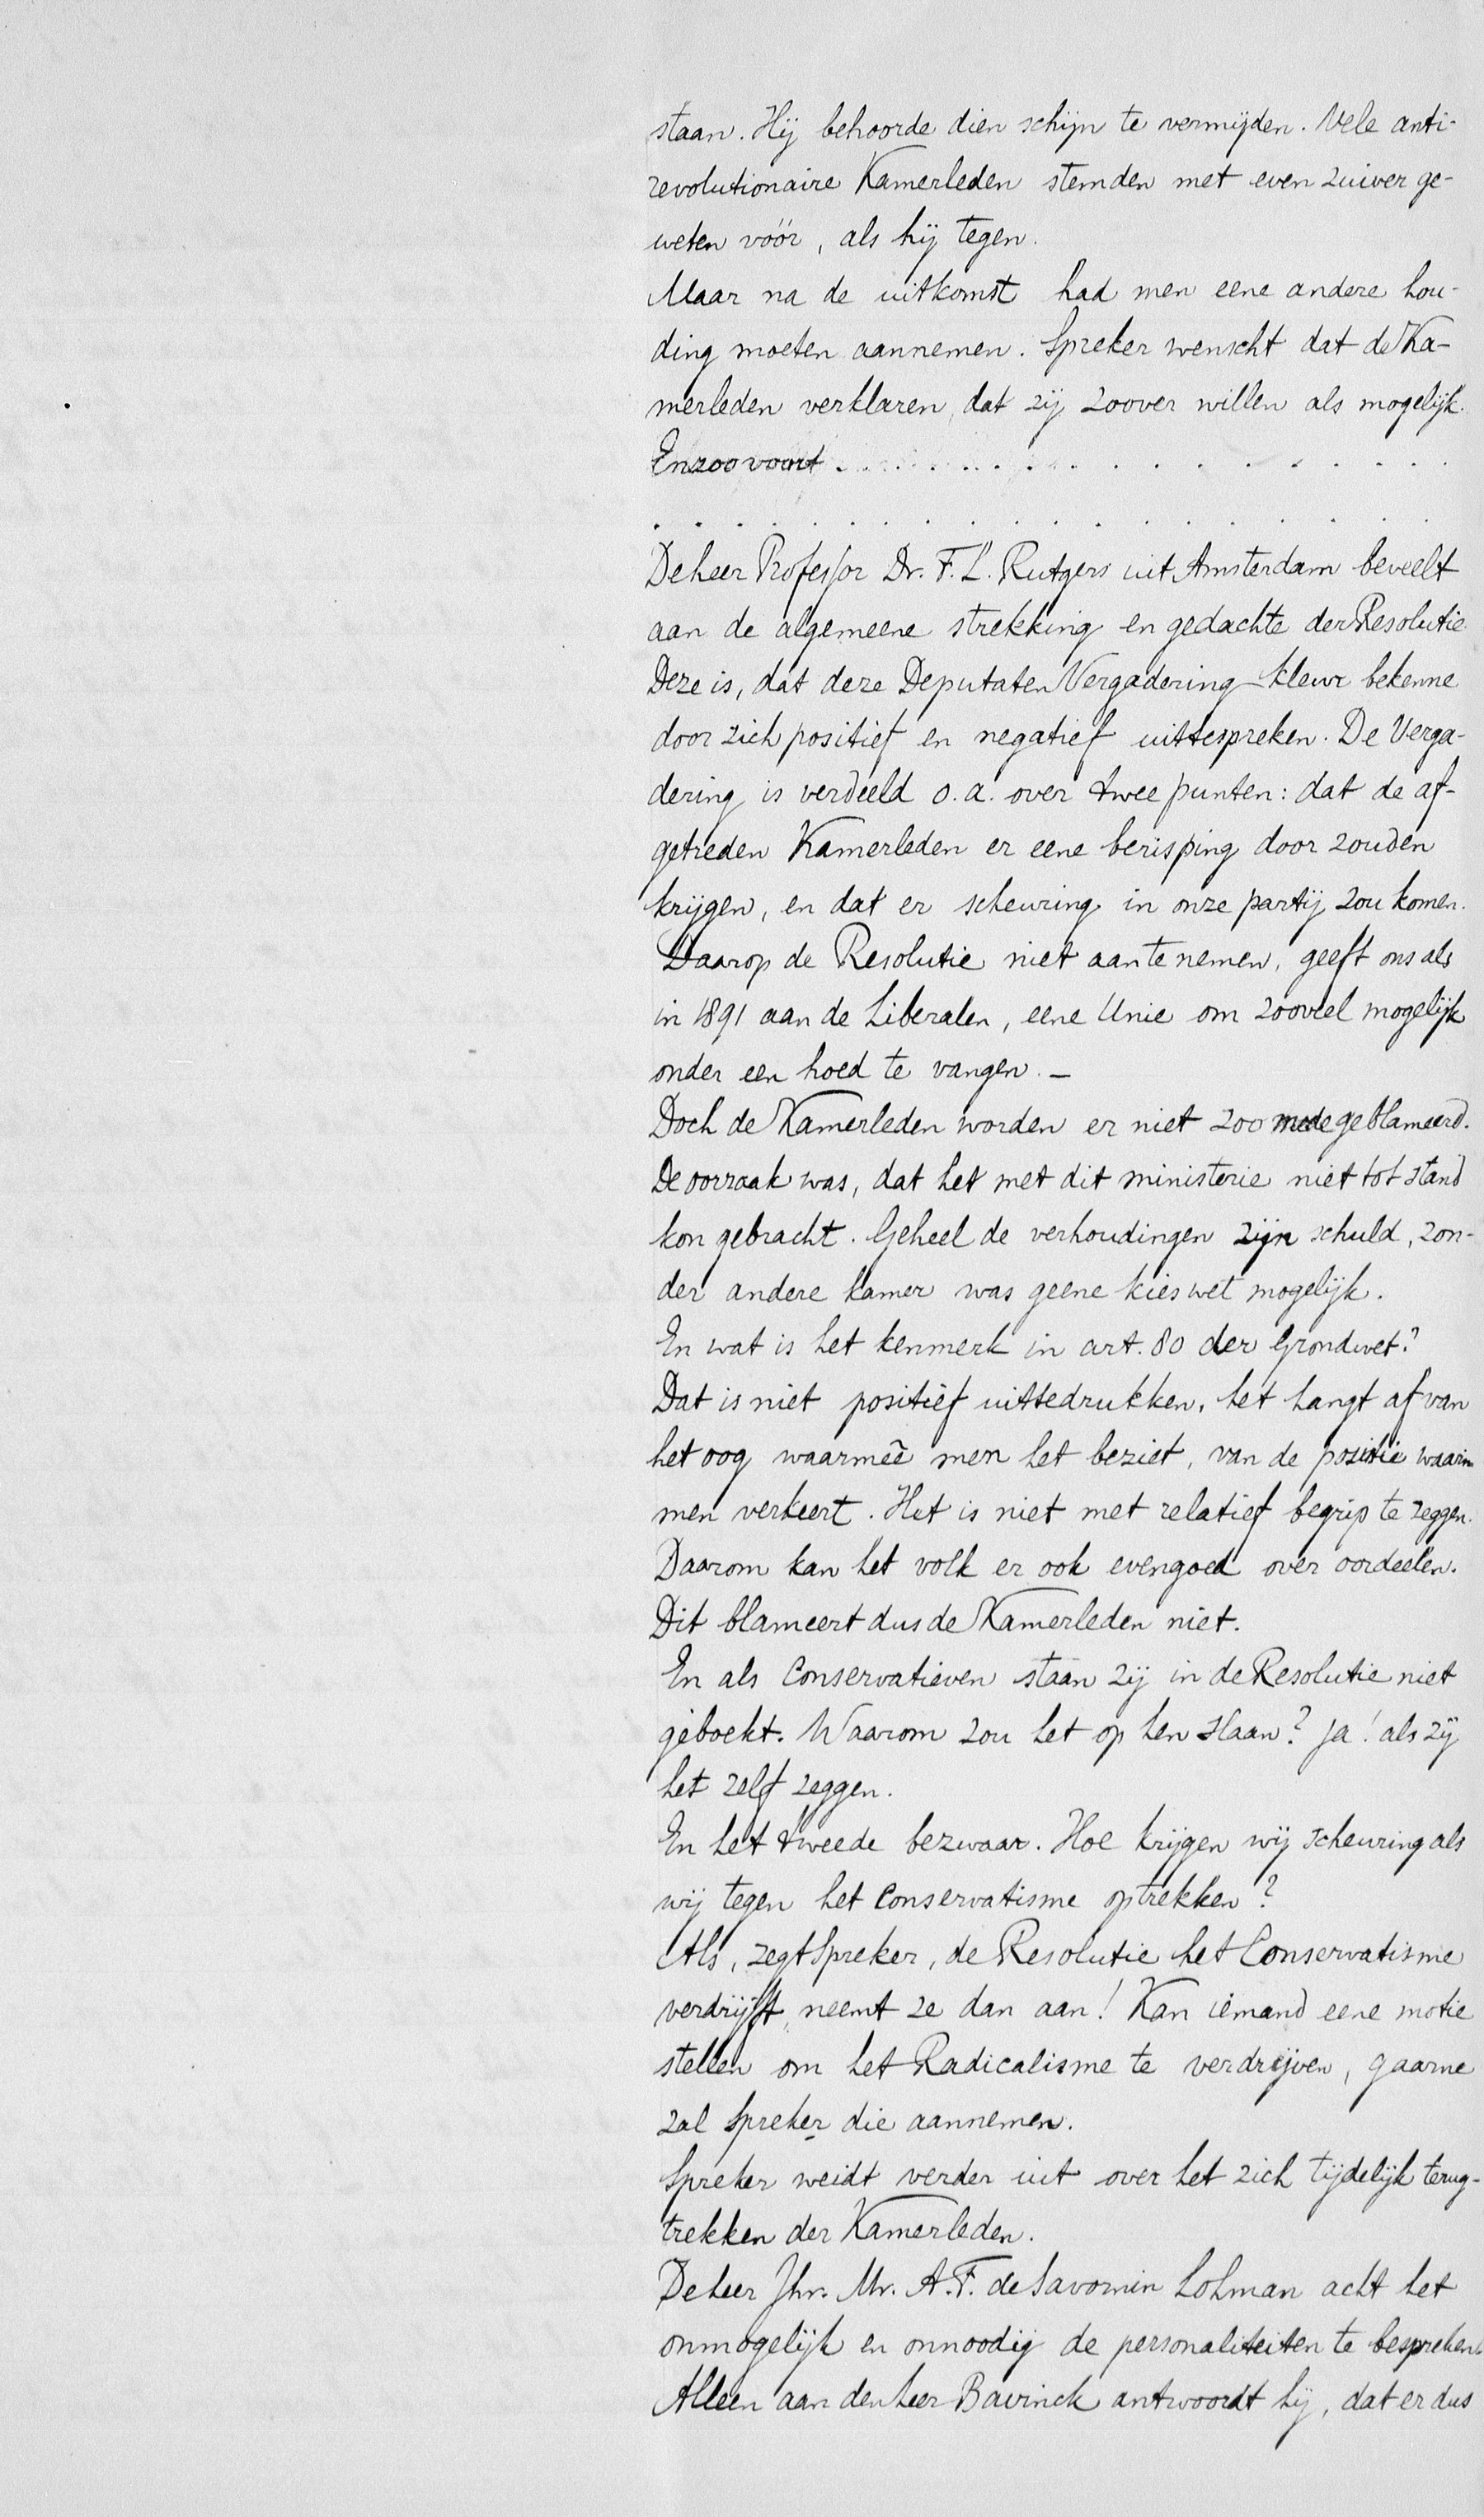 staan. Hij behoorde dien schijn te vermijden. Vele anti-
revolutionaire Kamerleden stemden met even zuiver ge-
weten vóór, als hij tegen.
Maar na de uitkomst had men eene andere hou-
ding moeten aannemen. Spreker wenscht dat de Ka-
merleden verklaren, dat zij zoover willen als mogelijk.
Enzoovoort . . . . . . . . . . . . . . .
. . . . . . . . . . . . . . . . . .
De heer Professor Dr. F. L. Rutgers uit Amsterdam beveelt
aan de algemeene strekking en gedachte der Resolutie.
Deze is, dat deze Deputaten Vergadering kleur bekenne
door zich positief en negatief uittespreken. De Verga-
dering is verdeeld o.a. over twee punten: dat de af-
getreden Kamerleden er eene berisping door zouden
krijgen, en dat er scheuring in onze partij zou komen.
Daarop de Resolutie niet aan te nemen, geeft ons als
in 1891 aan de Liberalen, eene Unie om zooveel mogelijk
onder een hoed te vangen. —
Doch de Kamerleden worden er niet zoo mede geblameerd.
De oorzaak was, dat het met dit ministerie niet tot stand
kon gebracht. Geheel de verhoudingen zijn schuld, zon-
der andere kamer was geene kieswet mogelijk.
En wat is het kenmerk in art. 80 der Grondwet?
Dat is niet positief uittedrukken, het hangt af van
het oog waarmeê men het beziet, van de positie waarin
men verkeert. Het is niet met relatief begrip te zeggen.
Daarom kan het volk er ook evengoed over oordeelen.
Dit blameert dus de Kamerleden niet.
En als Conservatieven staan zij in de Resolutie niet
geboekt. Waarom zou het op hen slaan? Ja! als zij
het zelf zeggen.
En het tweede bezwaar. Hoe krijgen wij scheuring als
wij tegen het Conservatisme optrekken?
Als, zegt Spreker, de Resolutie het Conservatisme
verdrijft, neemt ze dan aan! Kan iemand eene motie
stellen om het Radicalisme te verdrijven, gaarne
zal Spreker die aannemen.
Spreker weidt verder uit over het zich tijdelijk terug-
trekken der Kamerleden.
De heer Jhr. Mr. A. F. de Savornin Lohman acht het
onmogelijk en onnoodig de personaliteiten te bespreken.
Alleen aan den heer Bavinck antwoordt hij, dat er dus